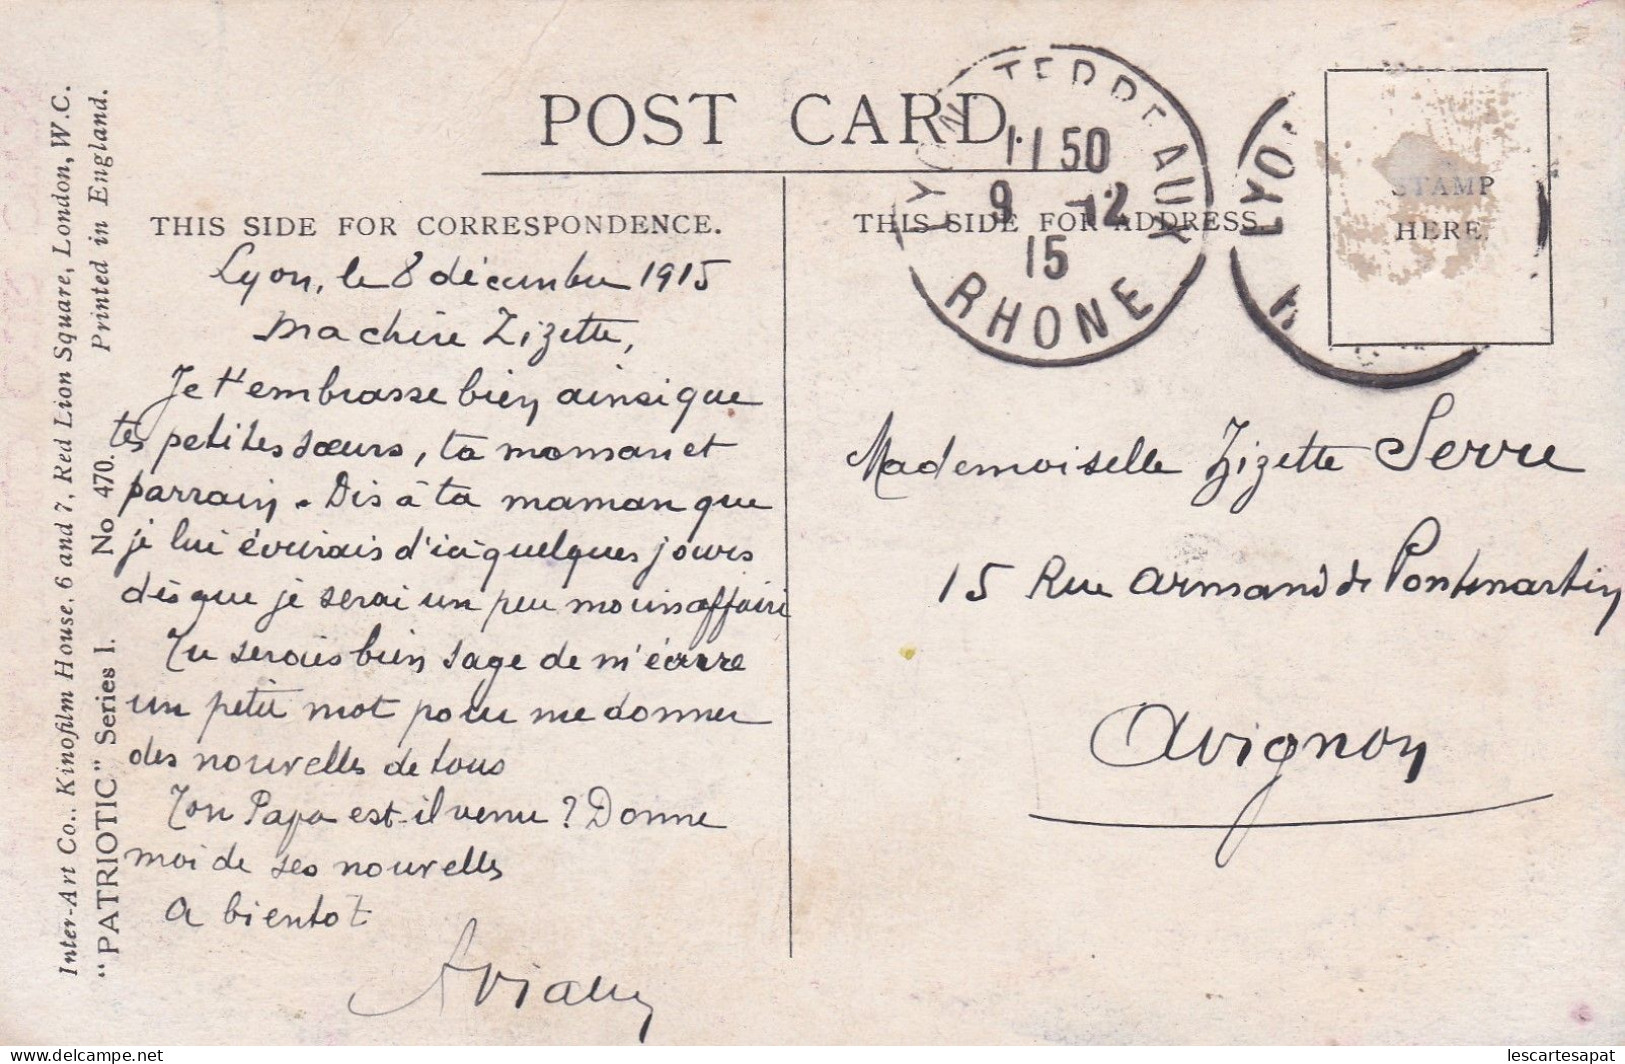 POST CARD.
THIS SIDE FOR CORRESPONDENCE.
THIS SIDE FOR ADDRESS.
STAMP
HERE.
LYON TERREAUX
11 50
9 -12
15
RHONE
LYO
Inter-Art Co., Kinofilm House, 6 and 7, Red Lion Square, London, W.C.
"PATRIOTIC" Series 1. No 470. Printed in England.
Lyon, le 8 décembre 1915
Ma chère Zizette,
Je t'embrasse bien ainsi que
tes petites sœurs, ta maman et
parrain. Dis à ta maman que
je lui écrirais d'ici quelques jours
dès que je serai un peu moins affairé
Tu serais bien sage de m'écrire
un petit mot pour me donner
des nouvelles de tous
Ton Papa est-il venu ? Donne
moi de ses nouvelles
A bientot
Mademoiselle Zizette Serre
15 Rue Armand de Pontmartin
Avignon
lescartesapat